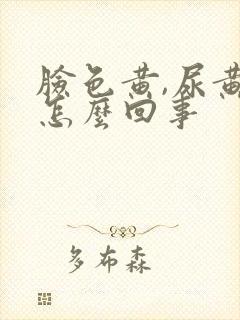 臉色黃,尿黃
怎麼回事
多布森